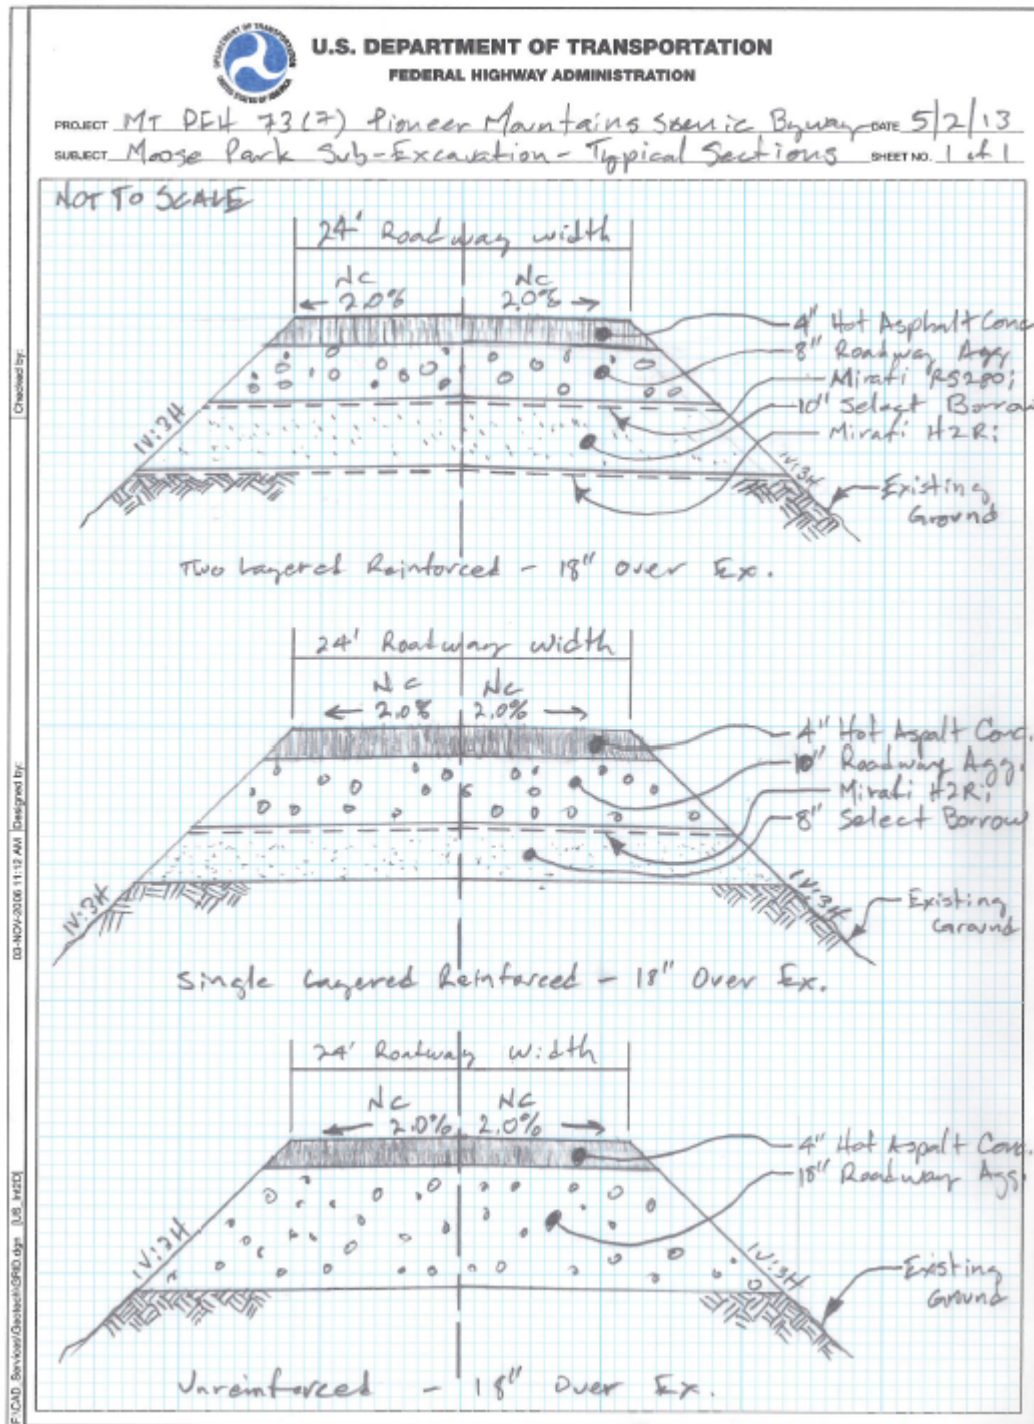 U.S. DEPARTMENT OF TRANSPORTATION
FEDERAL HIGHWAY ADMINISTRATION
PROJECT MT PFH 73(7) Pioneer Mountains Scenic Byway DATE 5/2/13
SUBJECT Moose Park Sub-Excavation - Typical Sections SHEET NO. 1 of 1
NOT TO SCALE
24' Roadway width
NC NC
2.0% 2.0%
4" Hot Asphalt Conc
8" Roadway Agg
Mirafi RS280i
10" Select Borrow
Mirafi H2Ri
1V:3H
1V:3H
Existing
Ground
Two Layered Reinforced - 18" Over Ex.
24' Roadway Width
NC NC
2.0% 2.0%
4" Hot Aspalt Conc.
10" Roadway Agg.
Mirafi H2Ri
8" Select Borrow
1V:3H
1V:3H
Existing
Ground
Single Layered Reinforced - 18" Over Ex.
24' Roadway Width
NC NC
2.0% 2.0%
4" Hot Aspalt Conc.
18" Roadway Agg.
1V:3H
1V:3H
Existing
Ground
Unreinforced - 18" Over Ex.
Checked by:
Designed by:
03-NOV-2006 11:12 AM